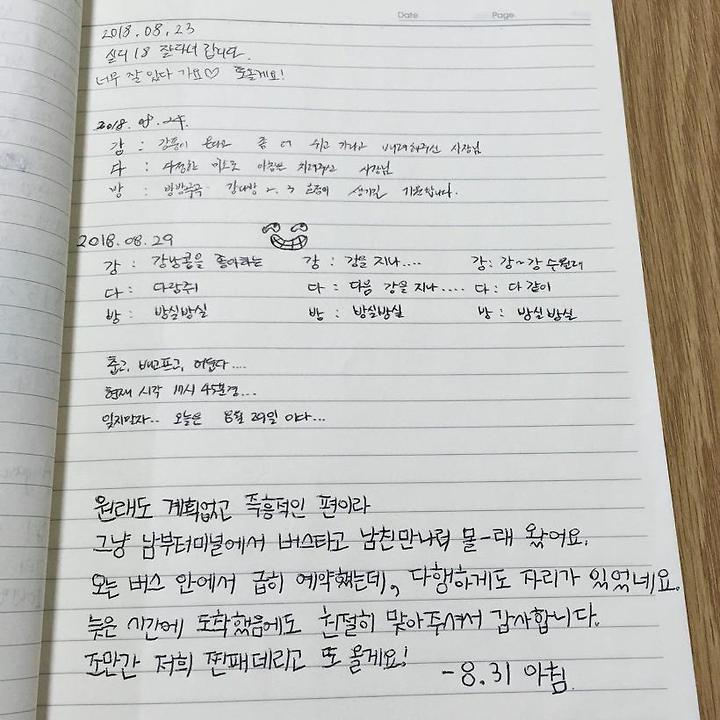 Date Page
2018.08.23
싶다 18 잘다녀 갑니다.
너무 잘 있다 가요♡ 또올게요!
2018.08.24.
감 : 태풍이 온다고 좀 더 쉬고 가라고 배려해주신 사장님
다 : 다정한 미소로 아침을 차려주신 사장님
방 : 방방곡곡 감다방 2, 3 호점이 생기길 기원합니다.
2018.08.29
감 : 강낭콩을 좋아하는 강 : 강을 지나.... 강 : 강~강 수월래
다 : 다람쥐 다 : 다음 강을 지나.... 다 : 다같이
방 : 방실방실 방 : 방실방실 방 : 방실방실
춥고, 배고프고, 어둡다....
현재 시각 17시 45분경...
잊지말자.. 오늘은 8월 29일 이다...
원래도 계획없고 즉흥적인 편이라
그냥 남부터미널에서 버스타고 남친만나러 몰-래 왔어요.
오는 버스 안에서 급히 예약했는데, 다행하게도 자리가 있었네요.
늦은 시간에 도착했음에도 친절히 맞아주셔서 감사합니다.
조만간 저희 찐패데리고 또 올게요!
-8.31 아침